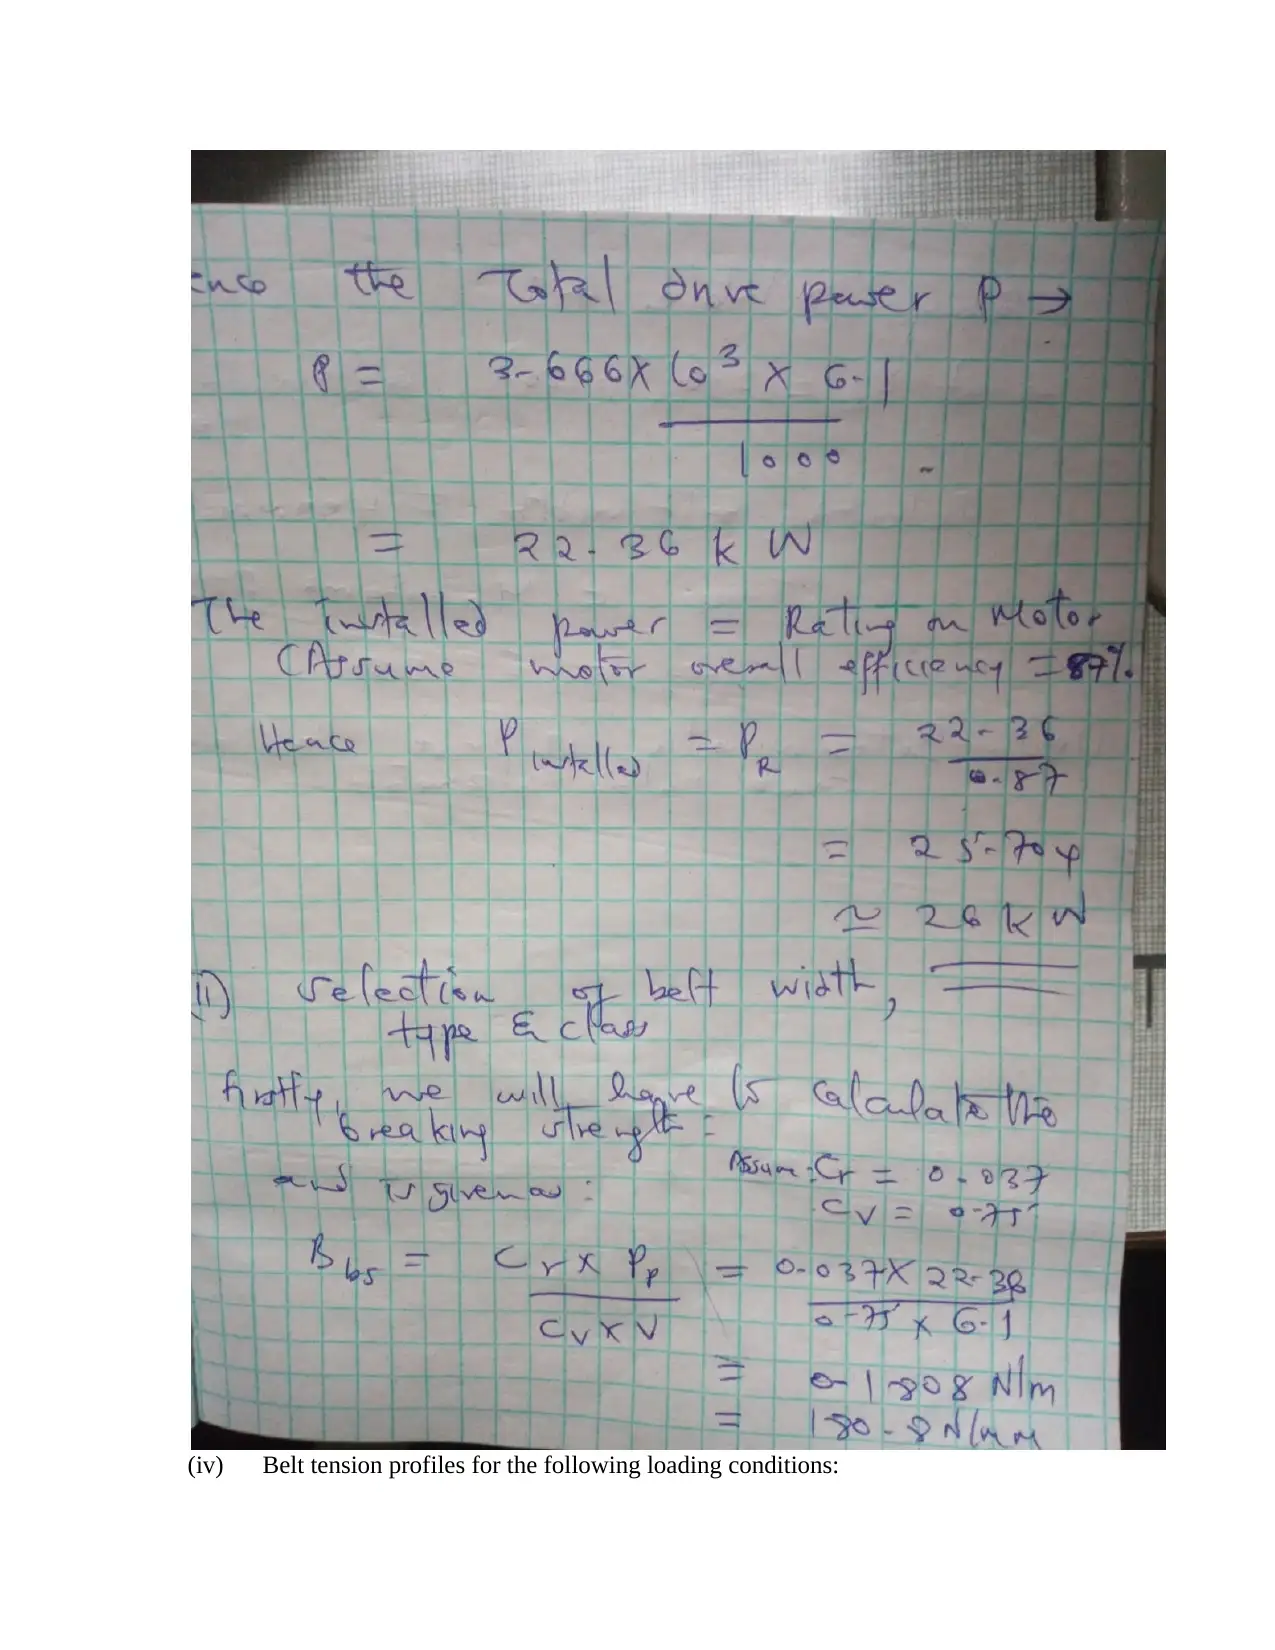 the Total drive power P →
P = 3-666 x 10^3 x 6-1
1000
= 22-36 kW
The installed power = Rating on Motor
(Assume motor overall efficiency = 87%.
Hence P installed = P_R = 22-36
0-87
= 25-704
≃ 26 kW
ii) selection of belt width,
type & class
firstly, we will have to calculate the
breaking strength:
and is given as:
Assume: Cr = 0-037
Cv = 0-75
B_bs = Cr x P_p = 0-037 x 22-36
Cv x V 0-75 x 6-1
= 0-1808 N/m
= 180-8 N/mm
(iv) Belt tension profiles for the following loading conditions: